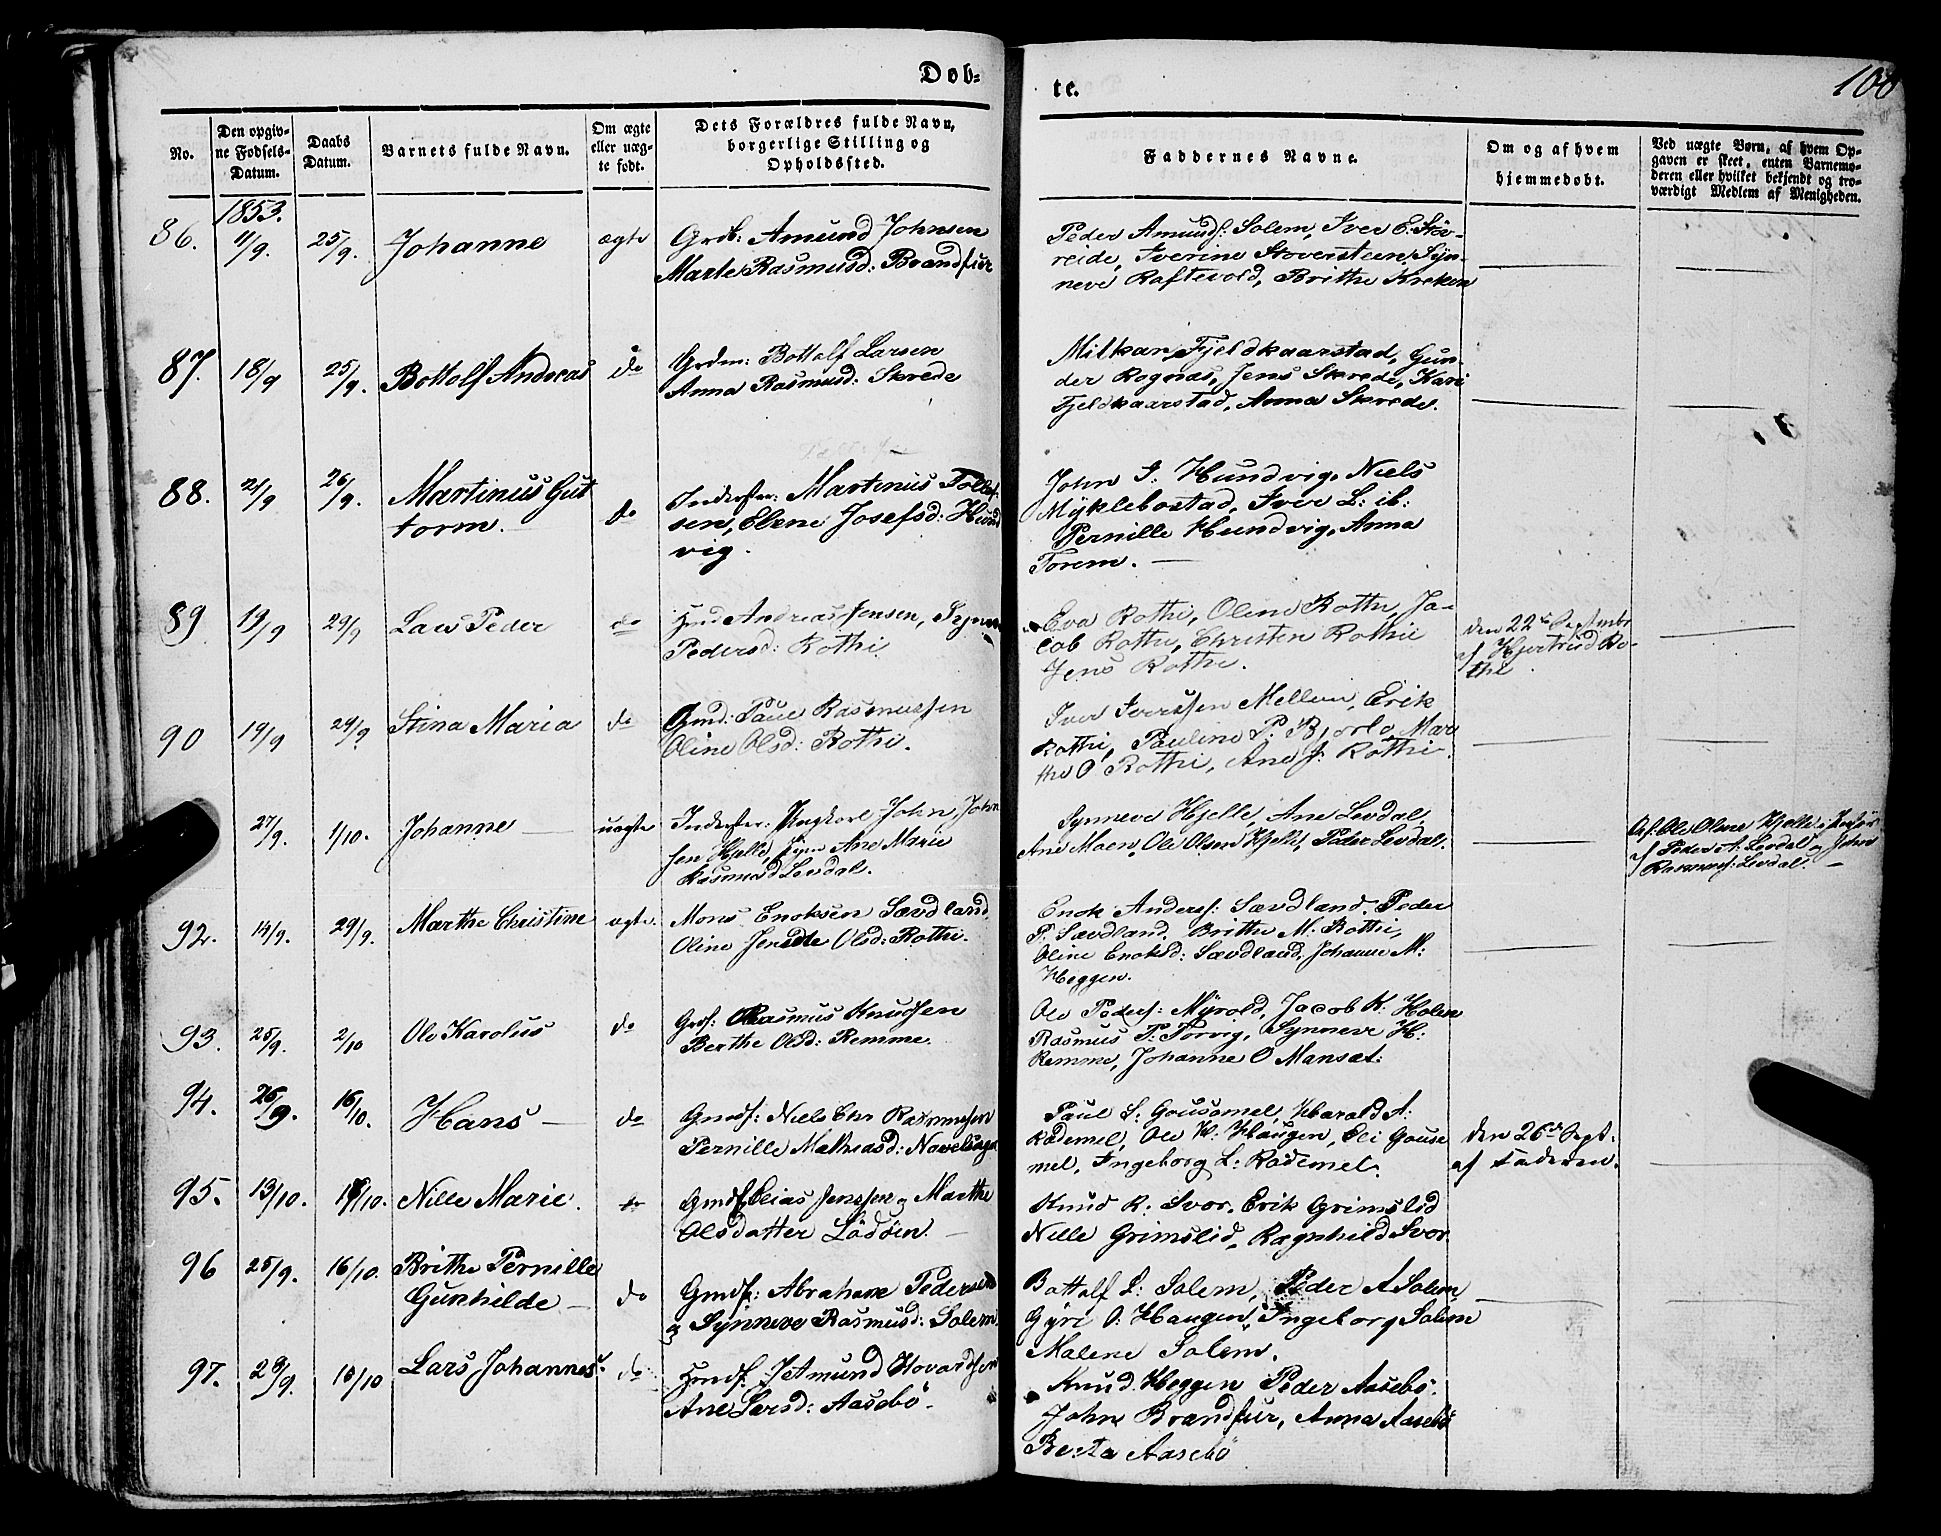 Døb=
te.
100
No.
Den opgiv=
ne Fødsels=
Datum.
Daabs
Datum.
Barnets fulde Navn.
Om ægte
eller uæg=
te født.
Dets Forældres fulde Navn,
borgerlige Stilling og
Opholdssted.
Faddernes Navne.
Om og af hvem
hjemmedøbt.
Ved uægte Børn, af hvem Op=
gaven er skeet, enten Barnemo=
deren eller hvilket bekjendt og tro=
værdigt Medlem af Menigheden.
1853.
86. 11/9. 25/9. Johanne ægte Amund Johnsen
Marte Rasmusd: Brandfur
Peder Amunds: Solem, Iver E. Stöv-
reide, Iverine Stoversteen, Syn-
neve Raftevold, Brithe Kreken
87. 18/9 25/9. Bottolf Andreas do Grdm: Bottolf Larsen
Anna Rasmusd: Skrede
Fjeldkaarstad, Gun-
der Rognas, Jens Skrede, Kari
Fjeldkaarstad, Anna Skrede.
88. 21/9 26/9. Martinus Gut
torm. do
Inderster: Martinus Tollef-
sen, Elene Josefsd: Hund
vig.
John I: Hundvig, Niels
Mÿklebostad, Iver L: ib:
Pernille Hundvig, Anna
Torem. —
89 19/9 29/9 Lars Peder do Andreas Jensen,
Pedersd: Rothi
Eva Rothi, Oline Rothi, Ja-
cob Rothi, Christen Rothi
Jens Rothi.
den 22de Septembr
af Hjertrud Ro-
the
90 19/9 29/9 Stina Maria do Gmd: Paul Rasmussen
Oline Olsd: Rothi.
Iver Iverssen Mellem, Erik
Rothi, Pauline P. Mar
the O Rothi, Ane J: Rothi.
27/9. 1/10. Johanne — uægte Inderster: Ungkarl John John
sen Hjelle, Ane Marie
Rasmusd Levdal.
Synneve Hjelle, Ane Levdal,
Ane Moen, Ole Olsen Hjelle, Peder Levdal.
Af: Ole Olsne Hjelle
af Peder A: Levdal og John
Levdal. —
92. 14/9. 29/9. Marthe Christine ægte. Mons Enoksen Sævdland.
Oline Olsd: Rothi.
Enok Anders: Sævdland, Peder
P. Sævdland, Brithe M. Rothi,
Oline Enoksd: Sævdland, Johanne M:
Heggen.
93. 25/9. 2/10 Ole Karolus do Rasmus Knudsen
Berthe Olsd: Remme.
Ole Peders: Mÿrold, Jacob K: Holen
Rasmus P: Torvig, Synneve H:
Remme, Johanne O Mansæt:
94. 26/9. 16/10. Hans — do Gmdf: Niels Chr Rasmussen
Pernille Mathiasd:
Paul L: Gausemel, Harald A:
Rademel, Ole W: Haugen, Eli Gause
mel, Ingeborg L: Rademel.
den 26de Sept:
af Faderen.
95. 13/10. Nille Marie. do Gmdf Elias Jenssen og Marthe
Olsdatter Lödöen. —
Knud R. Svor. Erik Grimslid
Nille Grimslid, Ragnhild Svor
96 25/9. 16/10. Brithe Pernille
Gunhilde — do
Gmdf: Abraham Pedersen
og Synneve Rasmusd: Solem.
Bottolf L: Solem, Peder A Solem
Gÿri O: Haugen, Ingeborg Solem
Malene Solem.
97. 29/9. 16/10 Lars Johannes. do: Hmdf. Amund Hovardsen
Ane Larsd: Aasebö.
Knud Heggen Peder Aasebö.
John Brandfur, Anna Aasebö
Berta Aasebö